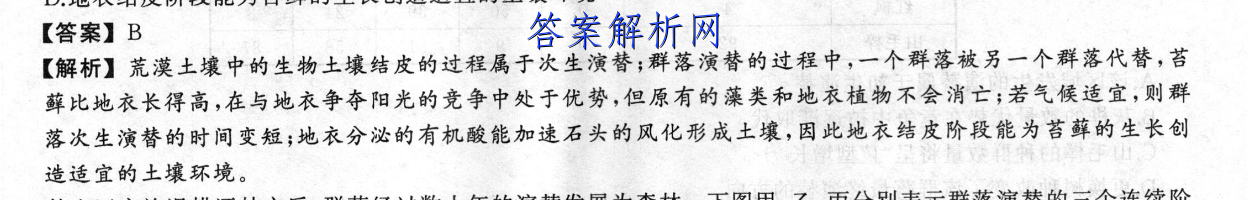 D.地衣结皮阶段能为苔藓的生长创造适宜的土壤环境
答案解析网
【答案】B
【解析】荒漠土壤中的生物土壤结皮的过程属于次生演替;群落演替的过程中,一个群落被另一个群落代替,苔
藓比地衣长得高,在与地衣争夺阳光的竞争中处于优势,但原有的藻类和地衣植物不会消亡;若气候适宜,则群
落次生演替的时间变短;地衣分泌的有机酸能加速石头的风化形成土壤,因此地衣结皮阶段能为苔藓的生长创
造适宜的土壤环境。
群落经过数十年的演替发展为森林。下图甲、乙、丙分别表示群落演替的三个连续阶